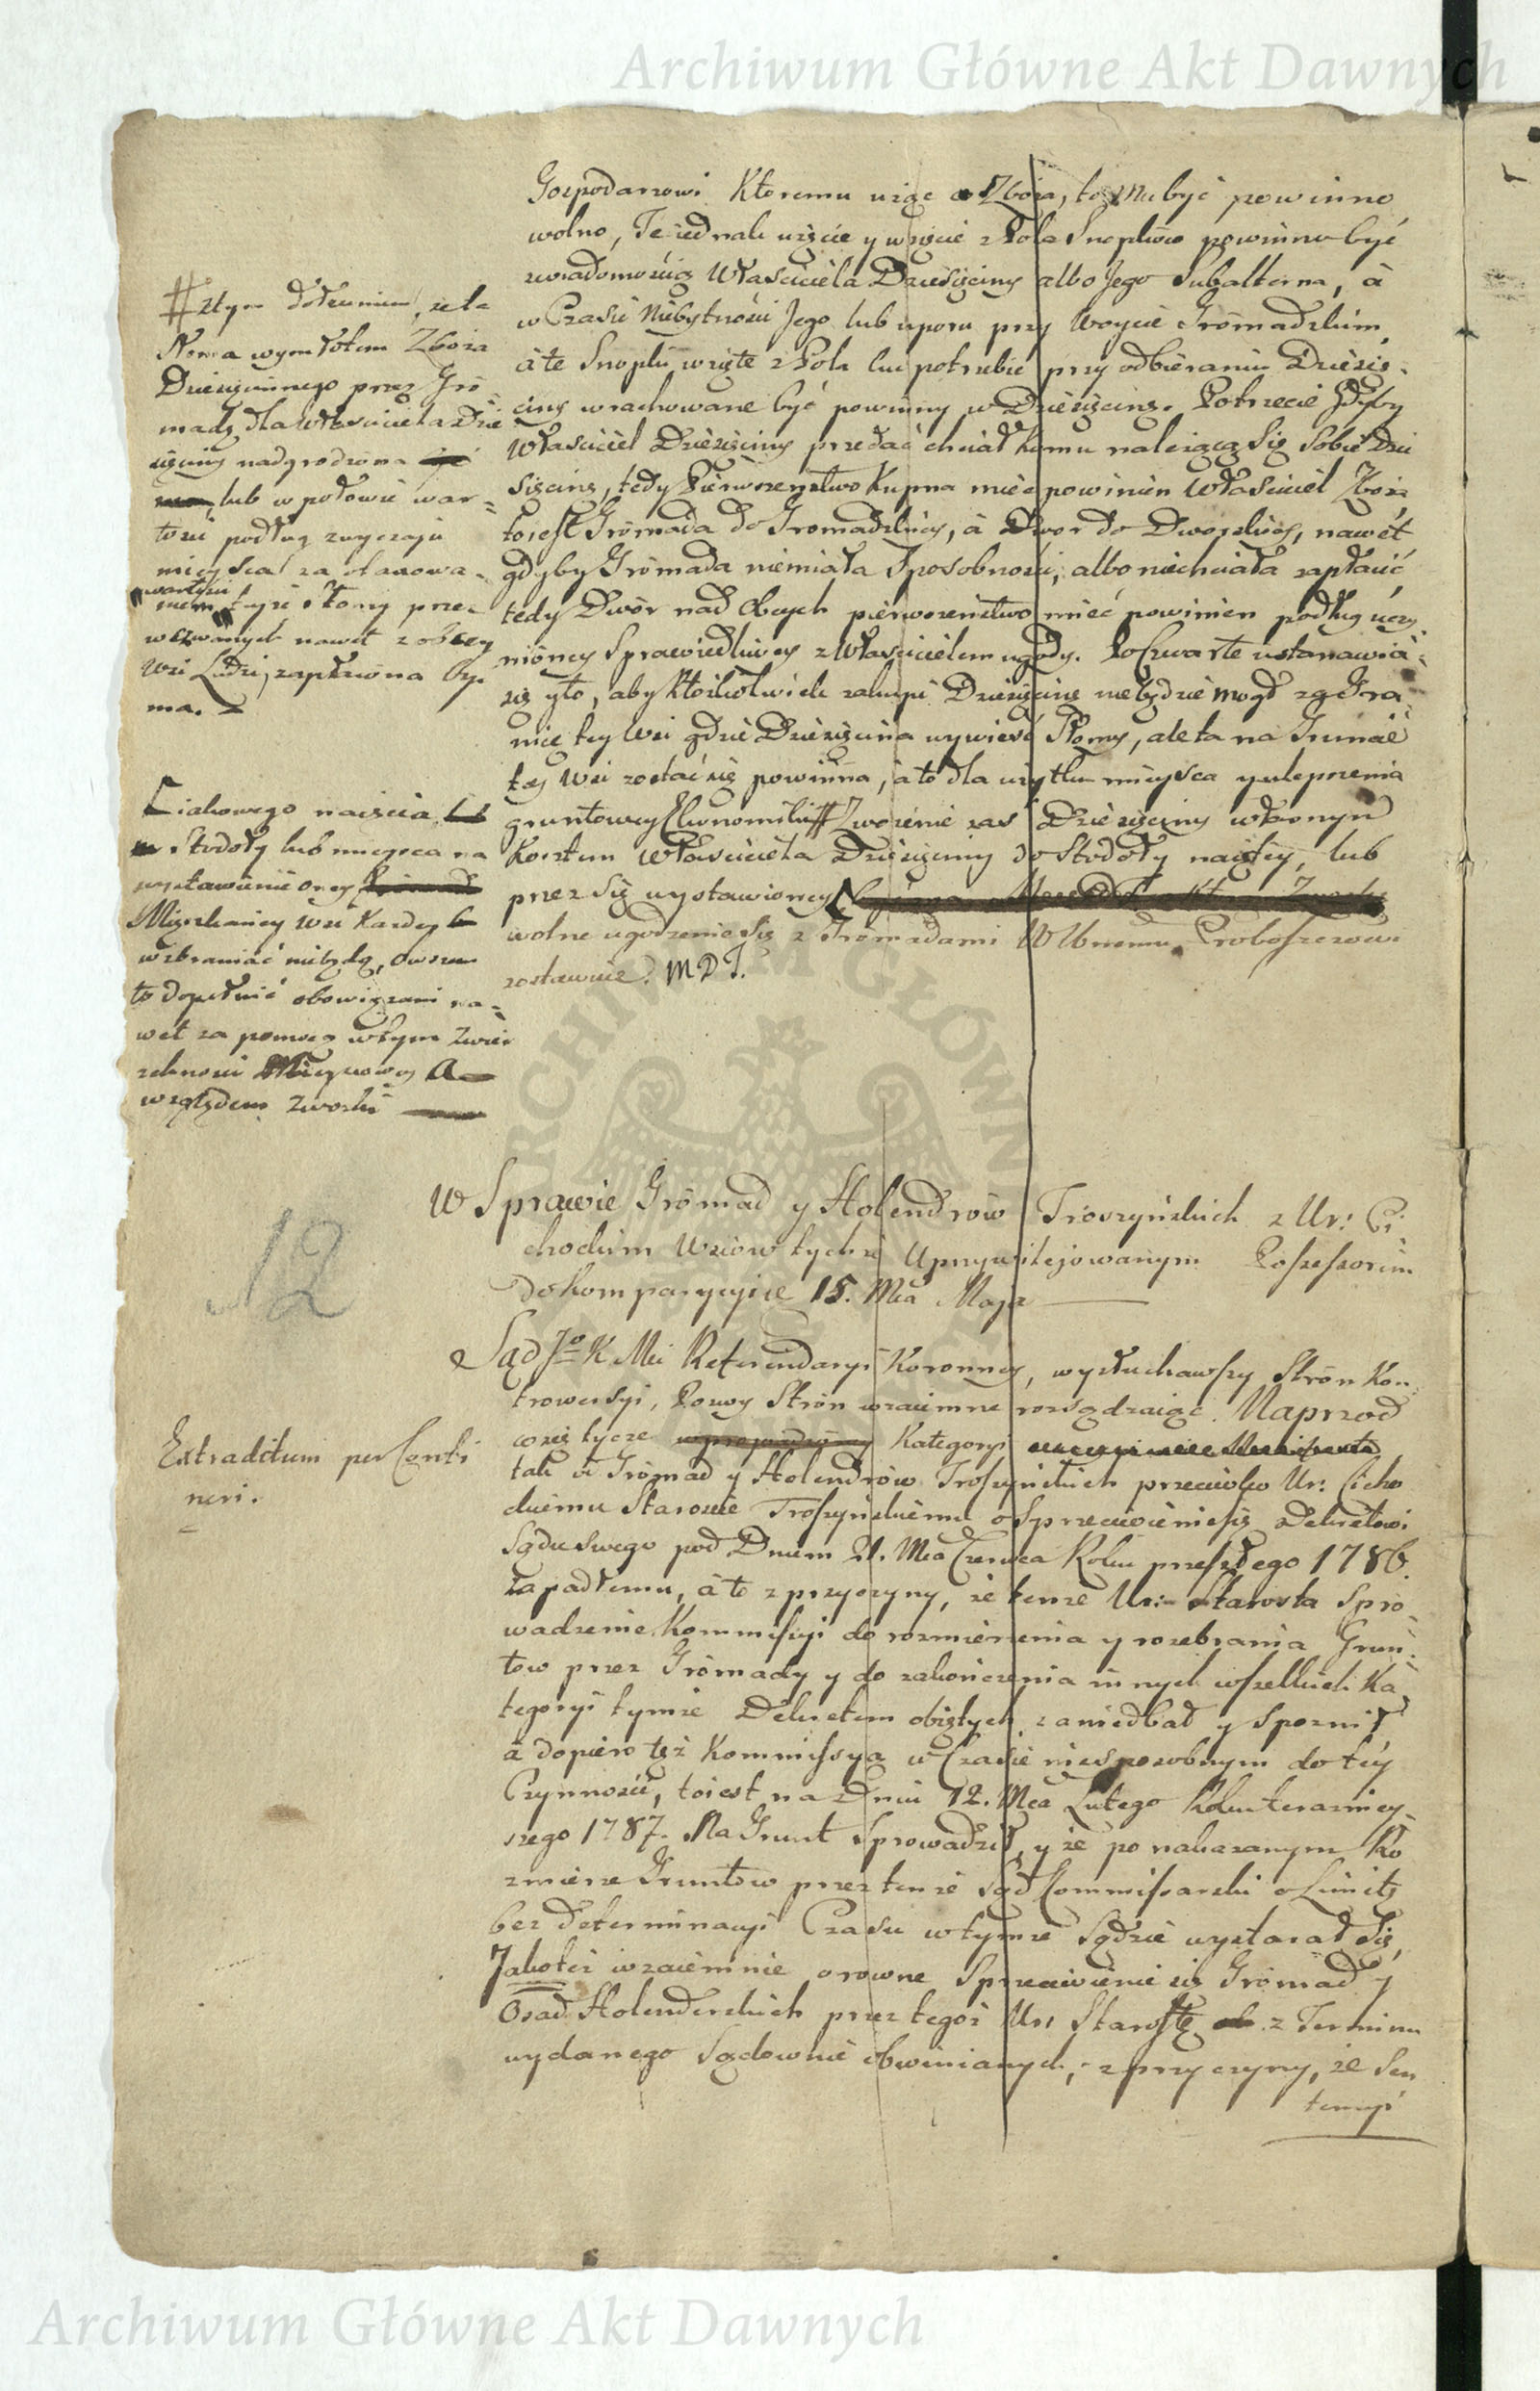 Archiwum Główne Akt Dawnych
Gospodarzowi Ktoremu urzge Zboza, to Mu być powinno
wolno, Te iednak użęcie y wzięcie z Pola Snopków powinno być
zwiadomością Właściciela Dziesięciny albo Jego Subalterna, à
w Czasie Niebytności Jego lub uporu przy Woycie Gromadzkim,
à te Snopki wzięte z Pola ku potrzebie przy odbieraniu Dziesię-
ciny wrachowane być powinny w Dziesięcinę. Potrzecie Gdyby
Właściciel Dziesięciny przedać chciał komu należącą Się Sobie Dzie
sięcinę, tedy Pierwszeństwo Kupna mieć powinien Właściciel Zboża
to iest Gromada do Gromadzkiey, à Dwor do Dworskiey, nawet
gdyby Gromada niemiała Sposobności, albo niechciała zapłacić
tedy Dwór nad Obcych pierwszeństwo mieć powinien podług uczy
nioney Sprawiedliwey z Właścicielem ugody. Poczwarte ustanawia
się y to, aby Ktożkolwiek zakupi Dziesięcinę niebędzie mogł za Gra
nicę tey Wsi gdzie Dziesięcina wywieść Słomy, ale ta na Gruncie
tey Wsi zostać się powinna, à to dla użytku mieysca y ulepszenia
gruntowey Ekonomiki # Zwożenie zaś Dziesięciny własnym
Kosztem Właściciela Dziesięciny do Stodoły naiętey, lub
przez Się wystawioney
wolne ugodzenie Się z Gromadami W Urnemu Proboszczowi
zostawuie. M D J.
# z tym dołożeniem, że ta
Słoma wymłotem Zboża
Dziesięcinnego przez Gro
madę dla Właściciela Dzie
sięciny nadgrodzona
lub w połowie war-
tości podług zwyczaju
mieysca za otaxowa-
wartości
niem teyże słomy przez
wezwanych nawet z obcey
Wsi Ludzi, zapłacona by
ma.
Ciakowego naięcia
Stodoły lub mieysca na
wystawienie oney
Mieszkańcy Wsi Kazdey
wzbraniać niebędą, owszem
to dopełnić obowiązani na-
wet za pomocą w tym Zwier
zchności Mieyscowey A
względem Zwozki
12
W Sprawie Gromad y Holendrów Troszyńskich z Ur: Ci
chockim Wsiow tychże Uprzywilejowanym Possessorem
Do komparycyi ie 15. Mca Maja
Sąd Jo K Mci Referendaryi Koronney, wysłuchawszy Stron Kon
trowersyi, Pozwy Stron wzaiemne rozsądzaiąc. Naprzod
co się tycze Kategoryi
tak od Gromad y Holendrów Troszyńskich przeciwko Ur: Cicho
ckiemu Staroście Troszyńskiemu o Sprzeciwienie się Dekretowi
Sądu Swego pod Dniem 21. Mca Czerwca Roku przeszłego 1786.
zapadłemu, à to z przyczyny, że tenże Ur: Starosta Spro
wadzenie Kommissyi do rozmierzenia y rozebrania Grun-
tow przez Gromady y do zakończenia innych wszelkich Ka
tegoryi tymże Dekretem obiętych zaniedbał y spoznił
à dopiero tęż Kommissya w Czasie niesposobnym do tey
Czynności, to iest na Dniu 12. Mca Lutego Roku teraźniey-
szego 1787. Na Grunt Sprowadził, y że po nakazanym Ro
zmierze Gruntow przez tenże Sąd Kommissarski o Limitę
bez determinacyi Czasu w tymże Sądzie wystarał Się,
Jakoteż wzaiemnie o rowne Sprzeciwienie się Gromad y
Osad Holenderskich przez tegoż Ur: Starostę z Terminu
wydanego Sądownie obwinianych, z przyczyny, że Sen
tencyi
Extraditum per Conti
neri.
Archiwum Główne Akt Dawnych